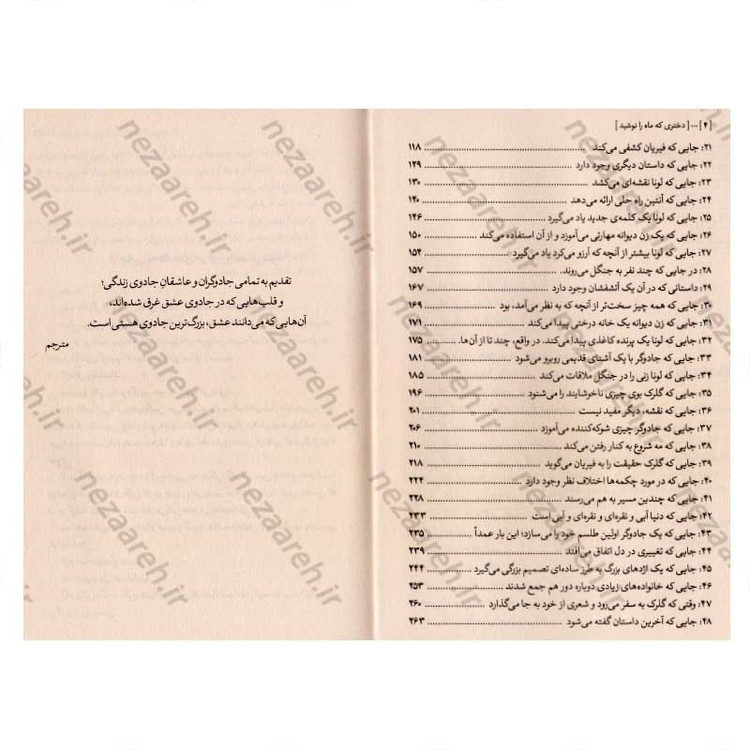 [۴] ... [ دختری که ماه را نوشید ]
۲۱: جایی که فیریان کشفی می‌کند ۱۱۸
۲۲: جایی که داستان دیگری وجود دارد ۱۲۹
۲۳: جایی که لونا نقشه‌ای می‌کشد ۱۳۰
۲۴: جایی که آنتین راه حلی ارائه می‌دهد ۱۴۰
۲۵: جایی که لونا یک کلمه‌ی جدید یاد می‌گیرد ۱۴۶
۲۶: جایی که یک زن دیوانه مهارتی می‌آموزد و از آن استفاده می‌کند ۱۵۰
۲۷: جایی که لونا بیشتر از آنچه که آرزو می‌کرد یاد می‌گیرد ۱۵۴
۲۸: در جایی که چند نفر به جنگل می‌روند. ۱۵۷
۲۹: داستانی که در آن یک آتشفشان وجود دارد ۱۶۷
۳۰: جایی که همه چیز سخت‌تر از آنچه که به نظر می‌آمد، بود ۱۶۹
۳۱: جایی که زن دیوانه یک خانه درختی پیدا می‌کند ۱۷۱
۳۲: جایی که لونا یک پرنده کاغذی پیدا می‌کند. در واقع، چند تا از آن‌ها. ۱۷۵
۳۳: جایی که جادوگر با یک آشنای قدیمی روبرو می‌شود ۱۸۱
۳۴: جایی که لونا زنی را در جنگل ملاقات می‌کند ۱۸۵
۳۵: جایی که گلرک بوی چیزی ناخوشایند را می‌شنود ۱۹۶
۳۶: جایی که نقشه، دیگر مفید نیست ۲۰۱
۳۷: جایی که جادوگر چیزی شوکه‌کننده می‌آموزد ۲۰۶
۳۸: جایی که مه شروع به کنار رفتن می‌کند ۲۱۰
۳۹: جایی که گلرک حقیقت را به فیریان می‌گوید ۲۱۸
۴۰: جایی که در مورد چکمه‌ها اختلاف نظر وجود دارد ۲۲۴
۴۱: جایی که چندین مسیر به هم می‌رسند ۲۲۸
۴۲: جایی که دنیا آبی و نقره‌ای و نقره‌ای و آبی است ۲۳۳
۴۳: جایی که یک جادوگر اولین طلسم خود را می‌سازد؛ این بار عمداً ۲۳۵
۴۴: جایی که تغییری در دل اتفاق می‌افتد ۲۳۹
۴۵: جایی که یک اژدهای بزرگ به طرز ساده‌ای تصمیم بزرگی می‌گیرد ۲۴۴
۴۶: جایی که خانواده‌های زیادی دوباره دور هم جمع شدند ۲۵۳
۴۷: وقتی که گلرک به سفر می‌رود و شعری از خود به جا می‌گذارد ۲۶۰
۴۸: جایی که آخرین داستان گفته می‌شود ۲۶۳
تقدیم به تمامی جادوگران و عاشقانِ جادوی زندگی؛
و قلب‌هایی که در جادوی عشق غرق شده‌اند،
آن‌هایی که می‌دانند عشق، بزرگ‌ترین جادوی هستی است.
مترجم
nezaareh.ir
nezaareh.ir
nezaareh.ir
nezaareh.ir
nezaareh.ir
nezaareh.ir
nezaareh.ir
nezaareh.ir